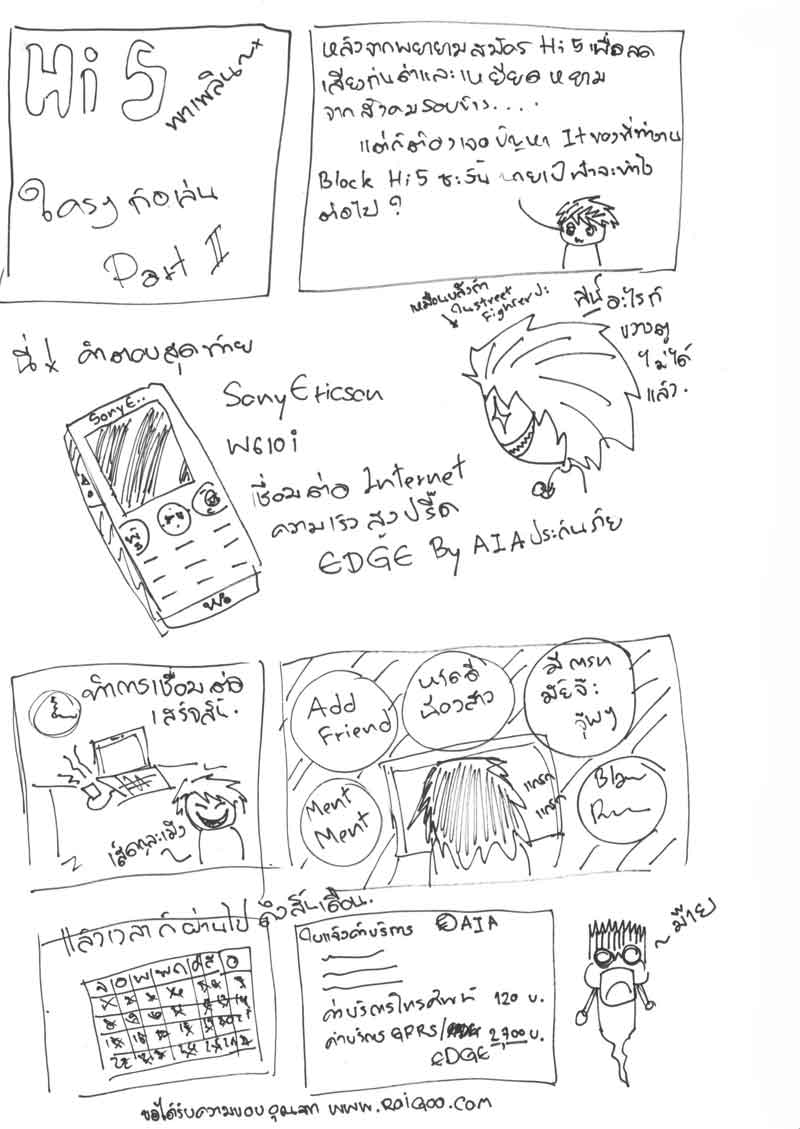 Hi 5
พาเพลินๆ
ใครๆ ก็เล่น
Part II
หลังจากพยายามสมัคร Hi 5 เพื่อลด
เสียงก่นด่าและเหยียดหยาม
จากสังคมรอบข้าง....
แต่ก็ต้องเจอปัญหา It ของที่ทำงาน
Block Hi5 ซะงั้น นายเป็ นำจะทำไง
ต่อไป ?
เหมือนบลังก้า
ใน street
Fighter ปะ
อะไรก็
ขวางตู
ไม่ได้
แล้ว.
นี่! คำตอบสุดท้าย
SonyE..
Sony Ericson
W610i
เชื่อมต่อ Internet
ความเร็วสูงปรี๊ด
EDGE By AIA ประกันภัย
ทำการเชื่อมต่อ
เสร็จสิ้น.
เสร็จละเมิง
Add
Friend
หาดี้
น้องสาว
มีแฟน
มัยจ๊ะ
จุ๊บๆ
Ment
Ment
แกรก
แกรก
แล้วเวลาก็ผ่านไป ถึงสิ้นเดือน.
จ อ พ พฤ ศ ส อ
ใบแจ้งค่าบริการ AIA
ค่าบริการโทรศัพท์ 120 บ.
ค่าบริการ GPRS/ 2,700 บ.
EDGE
~ ม๊าย
ขอได้รับความขอบคุณจาก www.RoiGoo.com